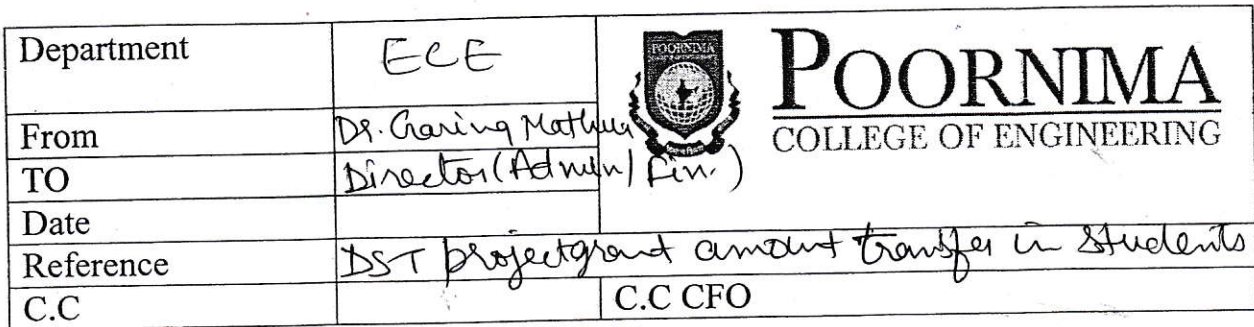 Department ECE
POORNIMA
POORNIMA
COLLEGE OF ENGINEERING
From Dr. Garima Mathur
TO Director (Admin/Fin.)
Date
Reference DST project grant amount transfer in Students
C.C C.C CFO